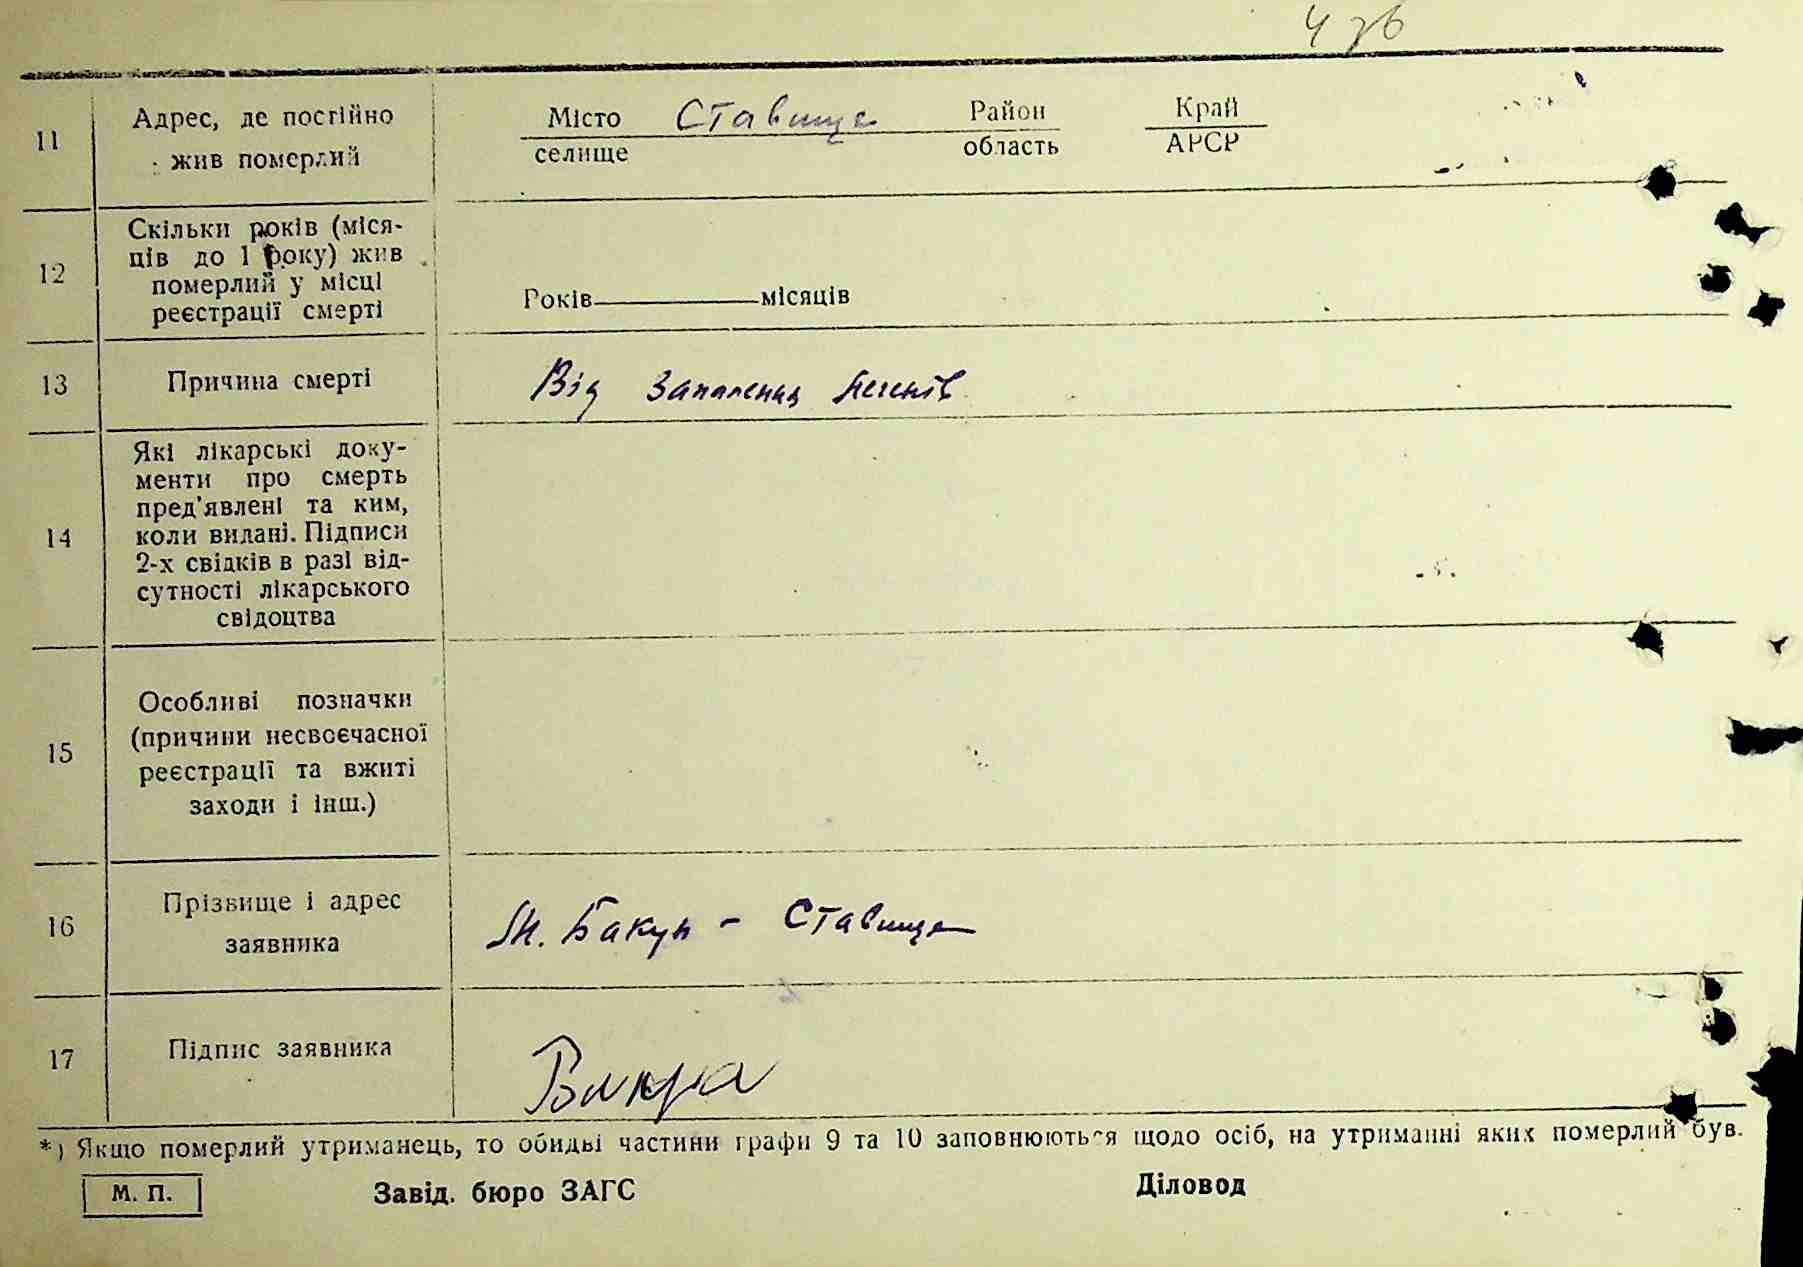 4 зв
11
Адрес, де постійно
жив померлий
Місто Ставище Район Край
селище область АРСР
12
Скільки років (міся-
ців до 1 року) жив
померлий у місці
реєстрації смерті
Років — місяців
13
Причина смерті
Від запалення легенів
14
Які лікарські доку-
менти про смерть
пред'явлені та ким,
коли видані. Підписи
2-х свідків в разі від-
сутності лікарського
свідоцтва
15
Особливі позначки
(причини несвоєчасної
реєстрації та вжиті
заходи і інш.)
16
Прізвище і адрес
заявника
М. Бакун – Ставище
17
Підпис заявника
*) Якщо померлий утриманець, то обидві частини графи 9 та 10 заповнюються щодо осіб, на утриманні яких померлий був.
М. П.
Завід. бюро ЗАГС
Діловод